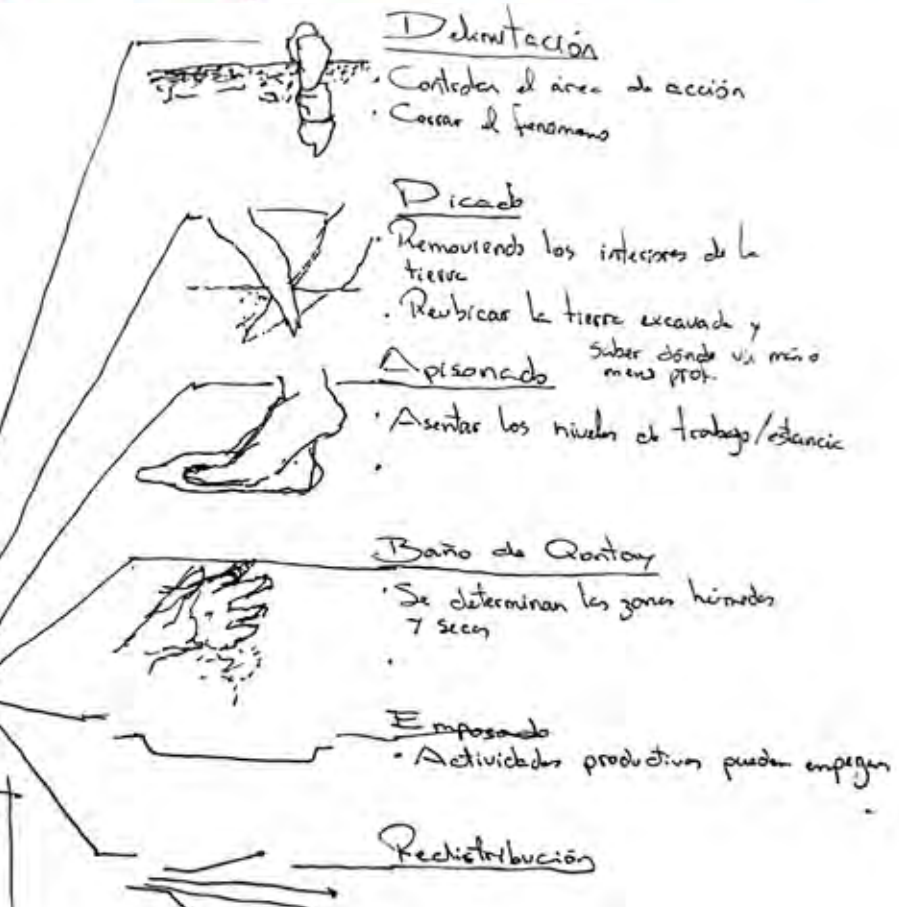 Delimitación
· Controlar el área de acción
· Cercar el fenómeno
Picado
· Removiendo los interiores de la
tierra
· Reubicar la tierra excavada y
saber dónde va más o
menos prof.
Apisonado
· Asentar los niveles de trabajo/estancia
·
Baño de Qontay
· Se determinan las zonas húmedas
y secas
·
Emposado
· Actividades productivas pueden empezar
·
Redistribución